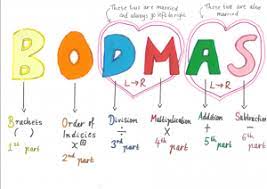 These two are married
and always go left to right
These two are also
married
BODMAS
L → R
L → R
Brackets
( )
1st part
Order of
Indicies
x
2nd part
Division
÷
3rd part
Multiplication
×
4th part
Addition
+
5th part
Subtraction
-
6th part